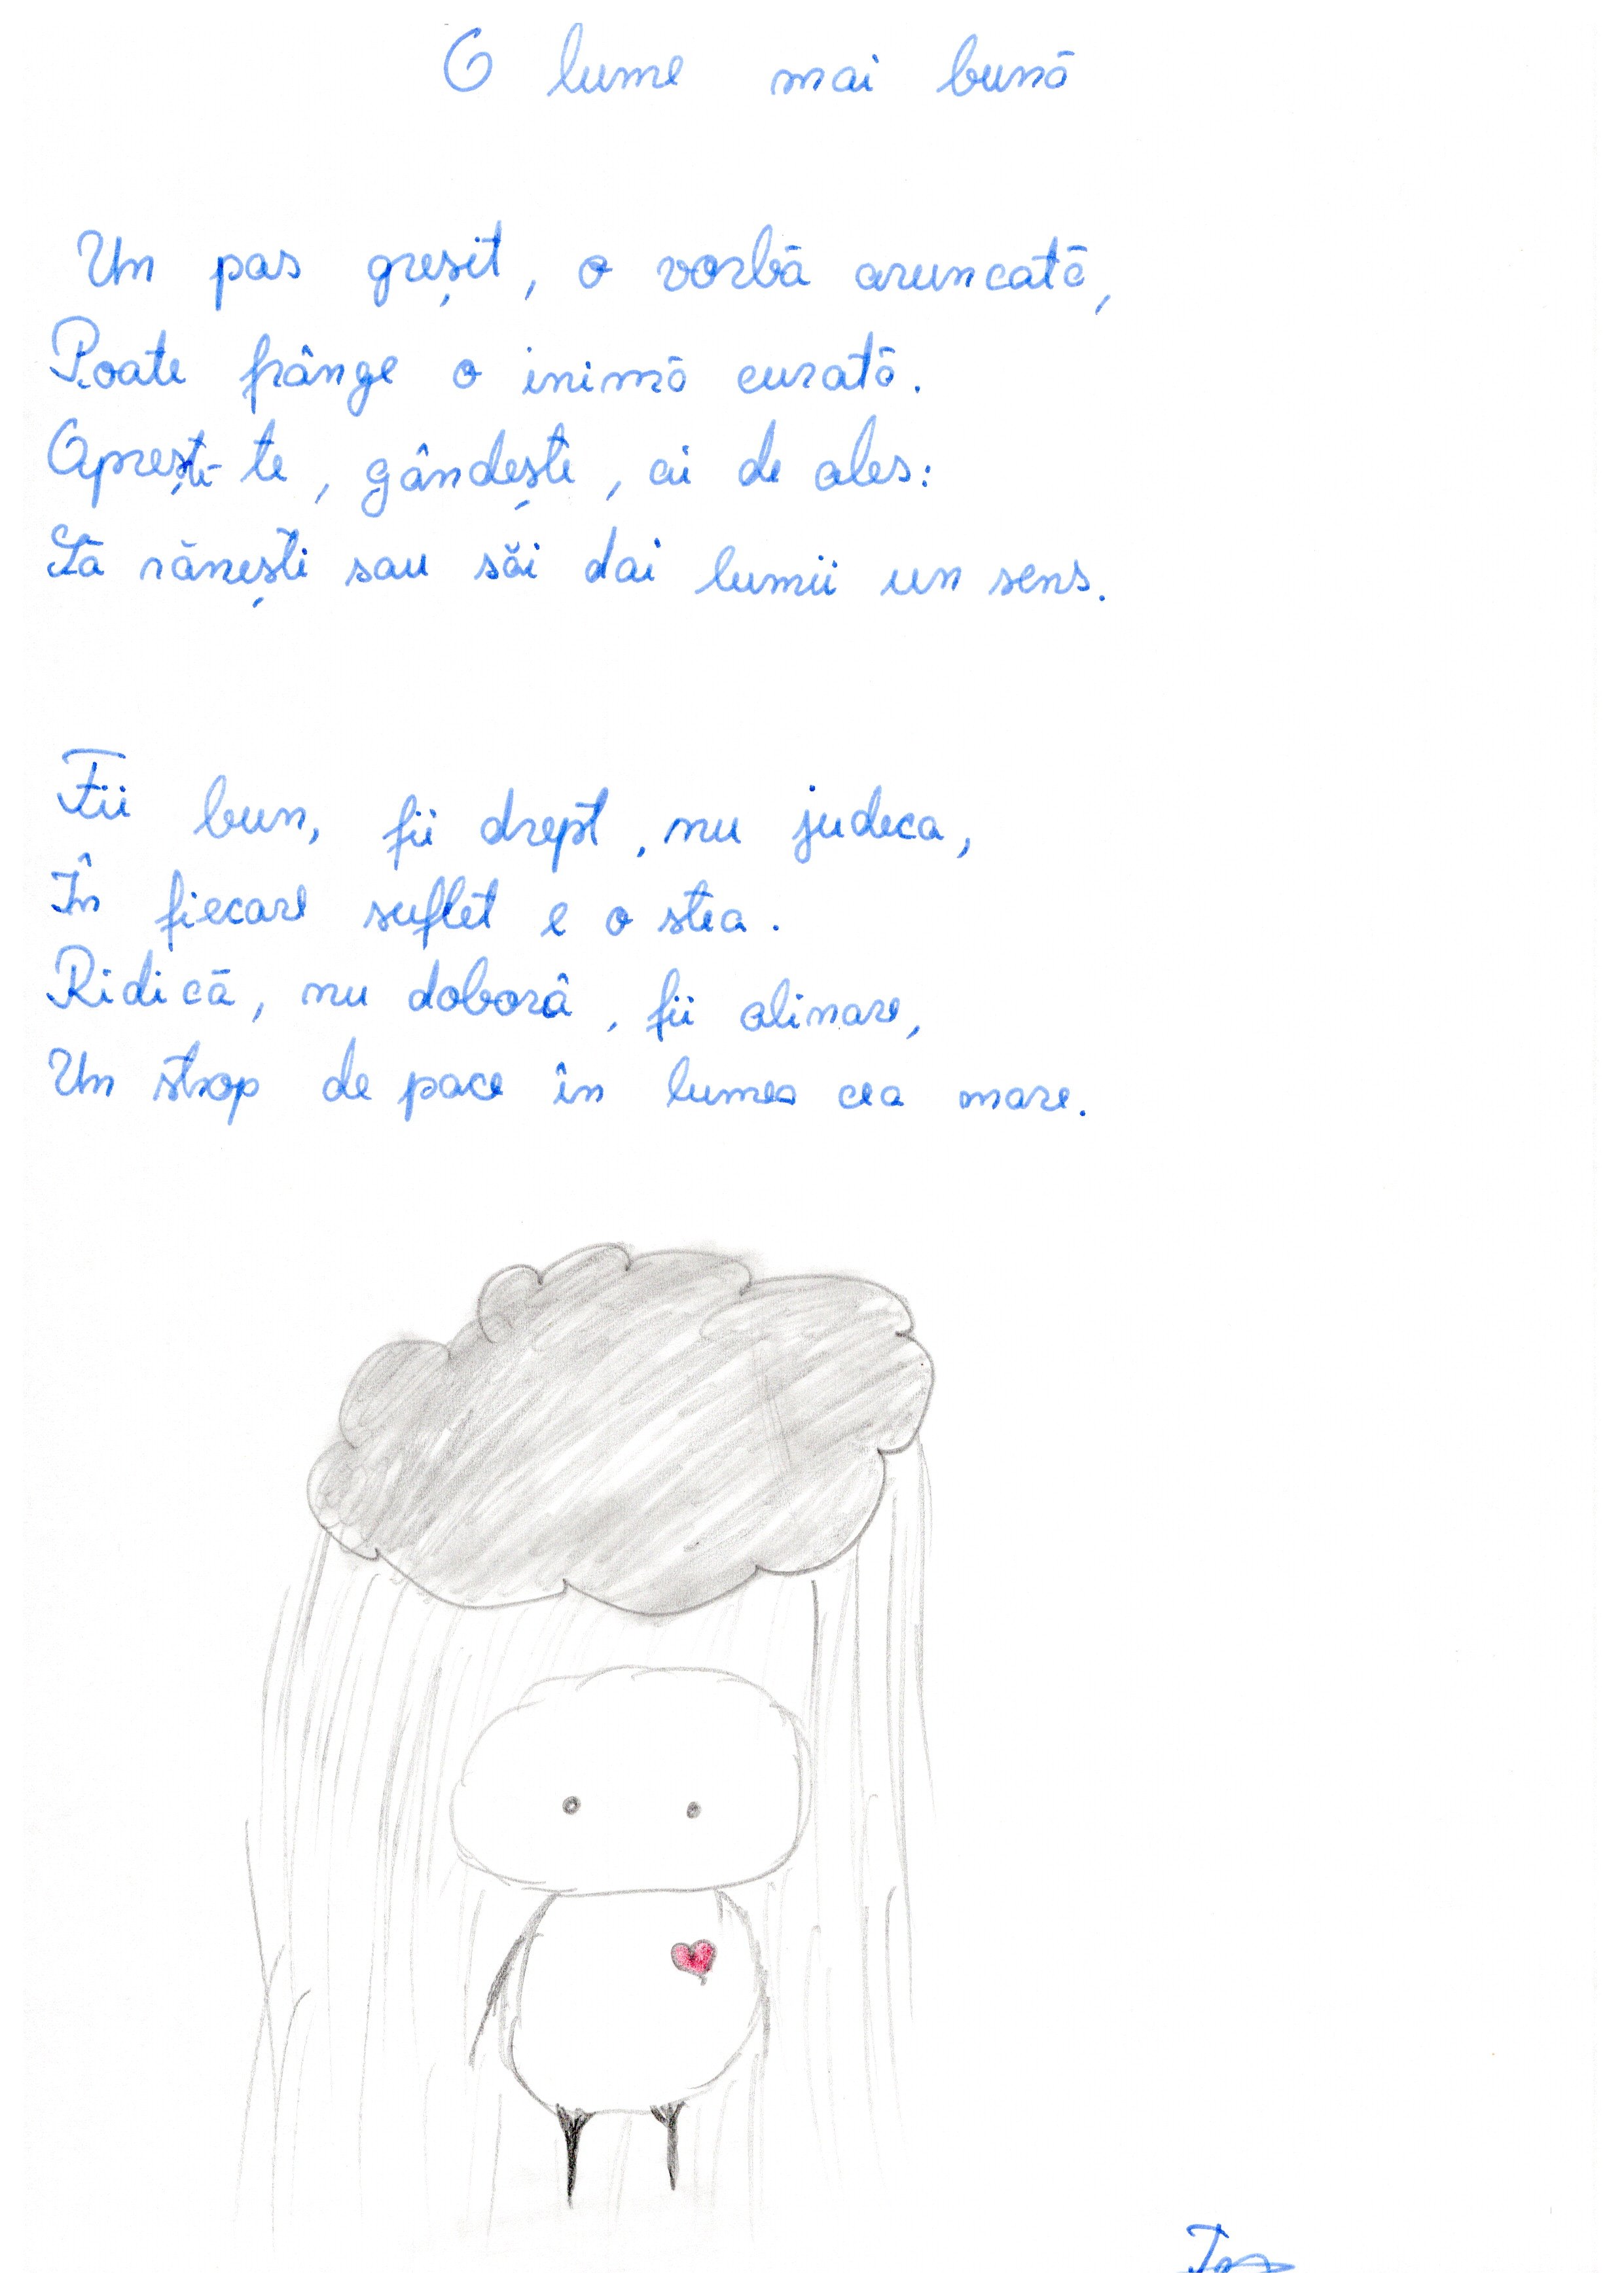 O lume mai bună
Un pas greșit, o vorbă aruncată,
Poate frânge o inimă curată.
Oprește-te, gândește, ai de ales:
Să rănești sau săi dai lumii un sens.
Fii bun, fii drept, nu judeca,
În fiecare suflet e o stea.
Ridică, nu doborâ, fii alinare,
Un strop de pace în lumea cea mare.